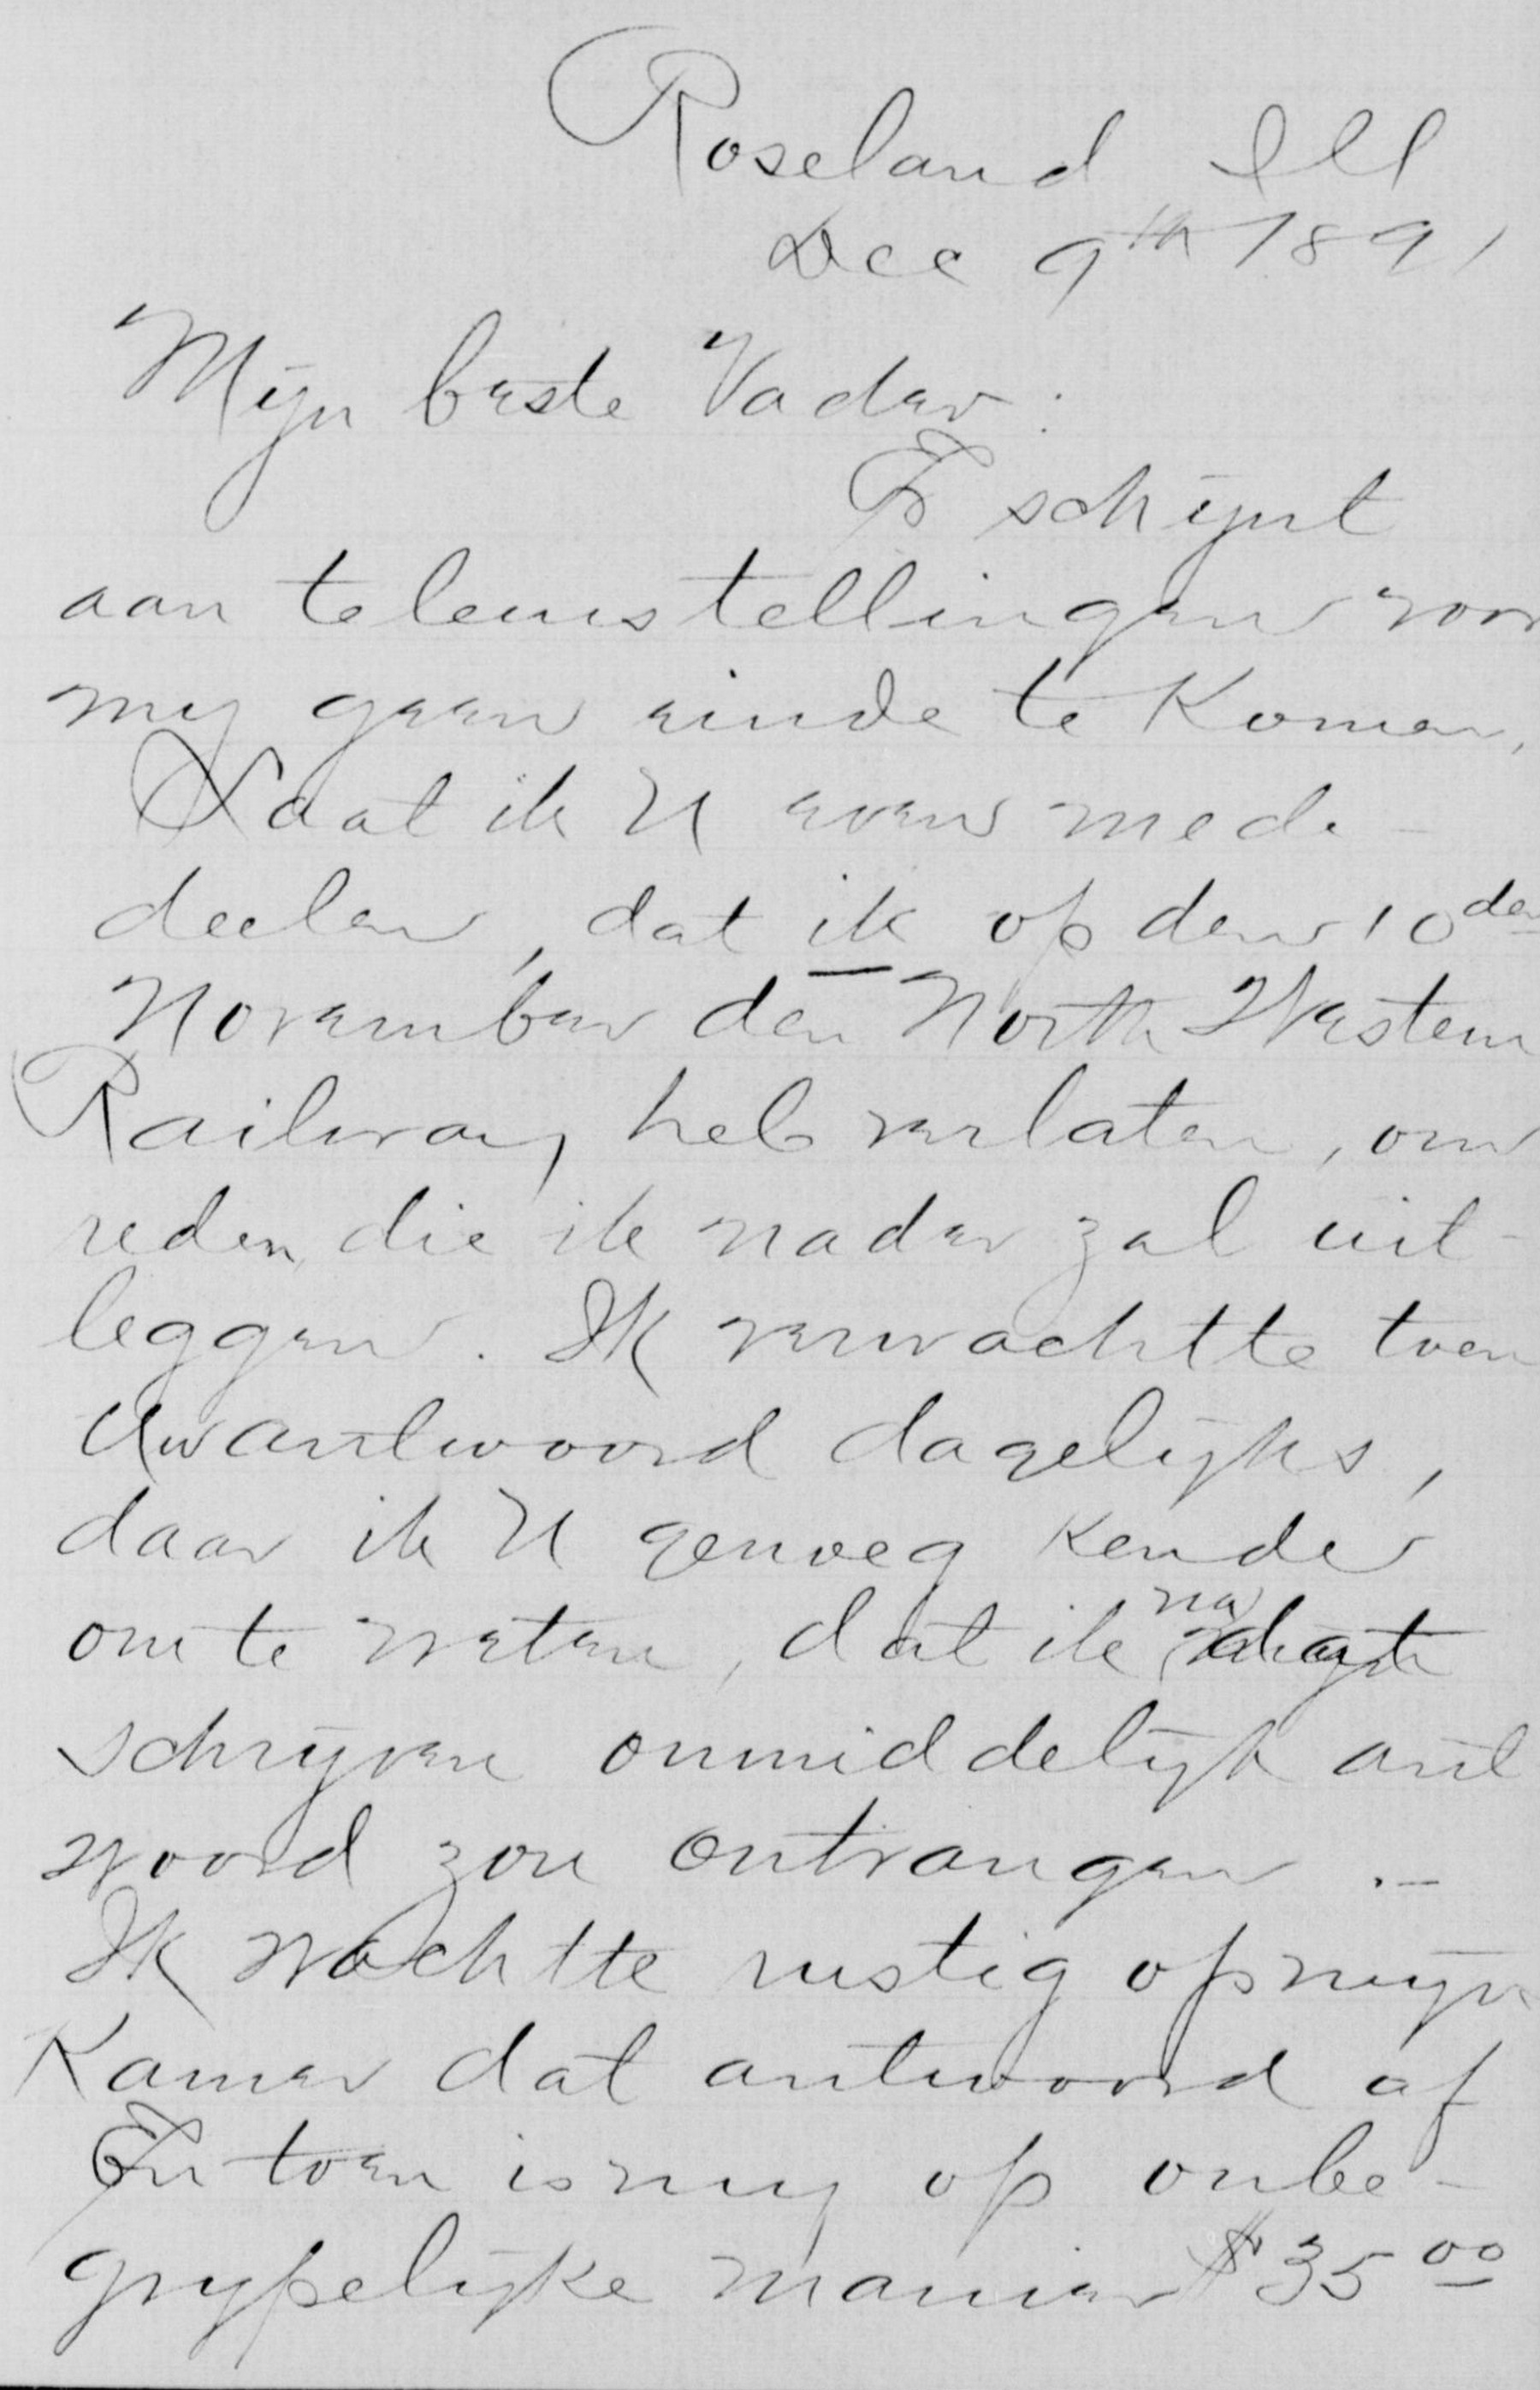 Roseland Ill
Dec 9th 1891
Mijn beste Vader:
Er schijnt
aan teleurstellingen voor
my geen einde te Komen.
Laat ik U even mede-
deelen, dat ik op den 10den
November den North Western
Railway heb verlaten, om
reden, die ik nader zal uit-
leggen. Ik verwachtte toen
Uw antwoord dagelijks,
daar ik U genoeg kende
om te weten, dat ik na
schrijven onmiddelijk ant
woord zou ontvangen .-
Ik wachtte rustig op mijn
Kamer dat antwoord af
En toen is my op onbe-
grypelijke manier $35 00